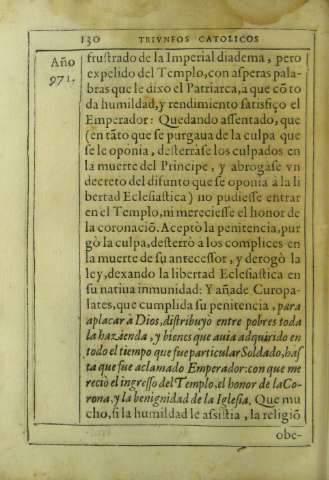 130 TRIVNFOS CATOLICOS
Año
971.
frustrado de la Imperial diadema, pero
expelido del Templo, con asperas pala-
bras que le dixo el Patriarca, a que cõ to
da humildad, y rendimiento satisfiço el
Emperador: Quedando assentado, que
(en tãto que se purgaua de la culpa que
se le oponia, desterrasse los culpados en
la muerte del Principe, y abrogase vn
decreto del difunto que se oponia à la li
bertad Eclesiastica) no pudiesse entrar
en el Templo, ni mereciesse el honor de
la coronaciõ. Aceptò la penitencia, pur
gò la culpa, desterrò a los complices en
la muerte de su antecessor, y derogò la
ley, dexando la libertad Eclesiastica en
su natiua inmunidad: Y añade Curopa-
lates, que cumplida su penitencia, para
aplacar à Dios, distribuyò entre pobres toda
la hazienda, y bienes que auia adquirido en
todo el tiempo que fue particular Soldado, has
ta que fue aclamado Emperador: con que me
reciò el ingresso del Templo, el honor de la Co-
rona, y la benignidad de la Iglesia. Que mu
cho, si la humildad le assistia, la religiõ
obe-